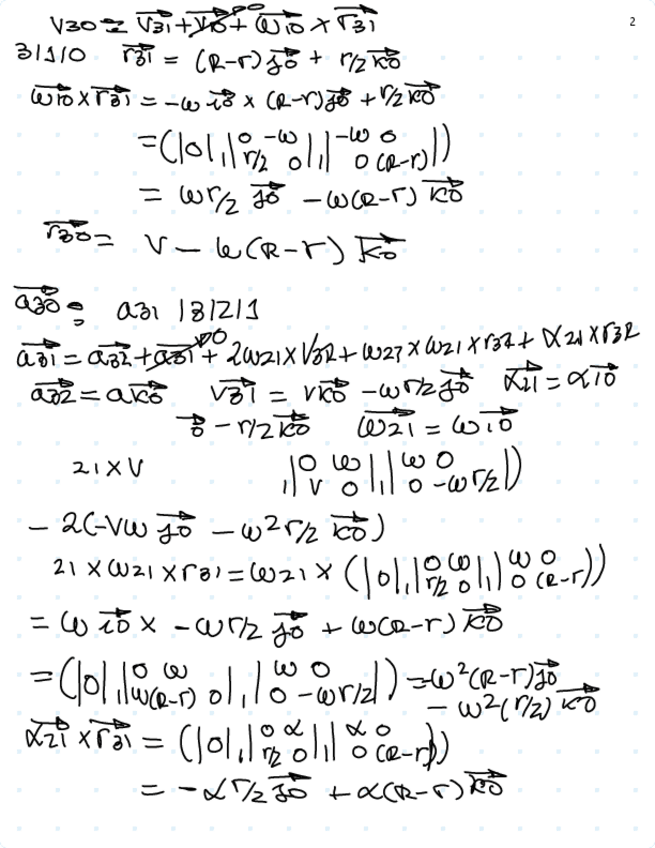 2
V30 = V31 + V10 + ω10 × r31
31/10 r31 = (R-r) j0 + r/2 k0
ω10 × r31 = -ω i0 × (R-r) j0 + r/2 k0
= (|0|, |0 -ω r/2 0|, |-ω 0 0 (R-r)|)
= ωr/2 j0 - ω(R-r) k0
= V - ω(R-r) k0
a30 = a31 |3|2|1
a31 = a32 + a31 + 2ω21 × V32 + ω21 × ω21 × r32 + α21 × r32
a32 = a k0 V31 = V k0 - ωr/2 j0 α21 = α i0
- r/2 k0 ω21 = ω i0
21 × V , |0 ω V 0|, |ω 0 0 -ωr/2|)
- 2(-Vω j0 - ω²r/2 k0)
21 × ω21 × r31 = ω21 × (|0|, |0 ω r/2 0|, |ω 0 0 (R-r)|)
= ω i0 × -ωr/2 j0 + ω(R-r) k0
= (|0|, |0 ω ω(R-r) 0|, |ω 0 0 -ωr/2|) = -ω²(R-r) j0
- ω²(r/2) k0
α21 × r31 = (|0|, |0 α r/2 0|, |α 0 0 (R-r)|)
= -α r/2 j0 + α(R-r) k0